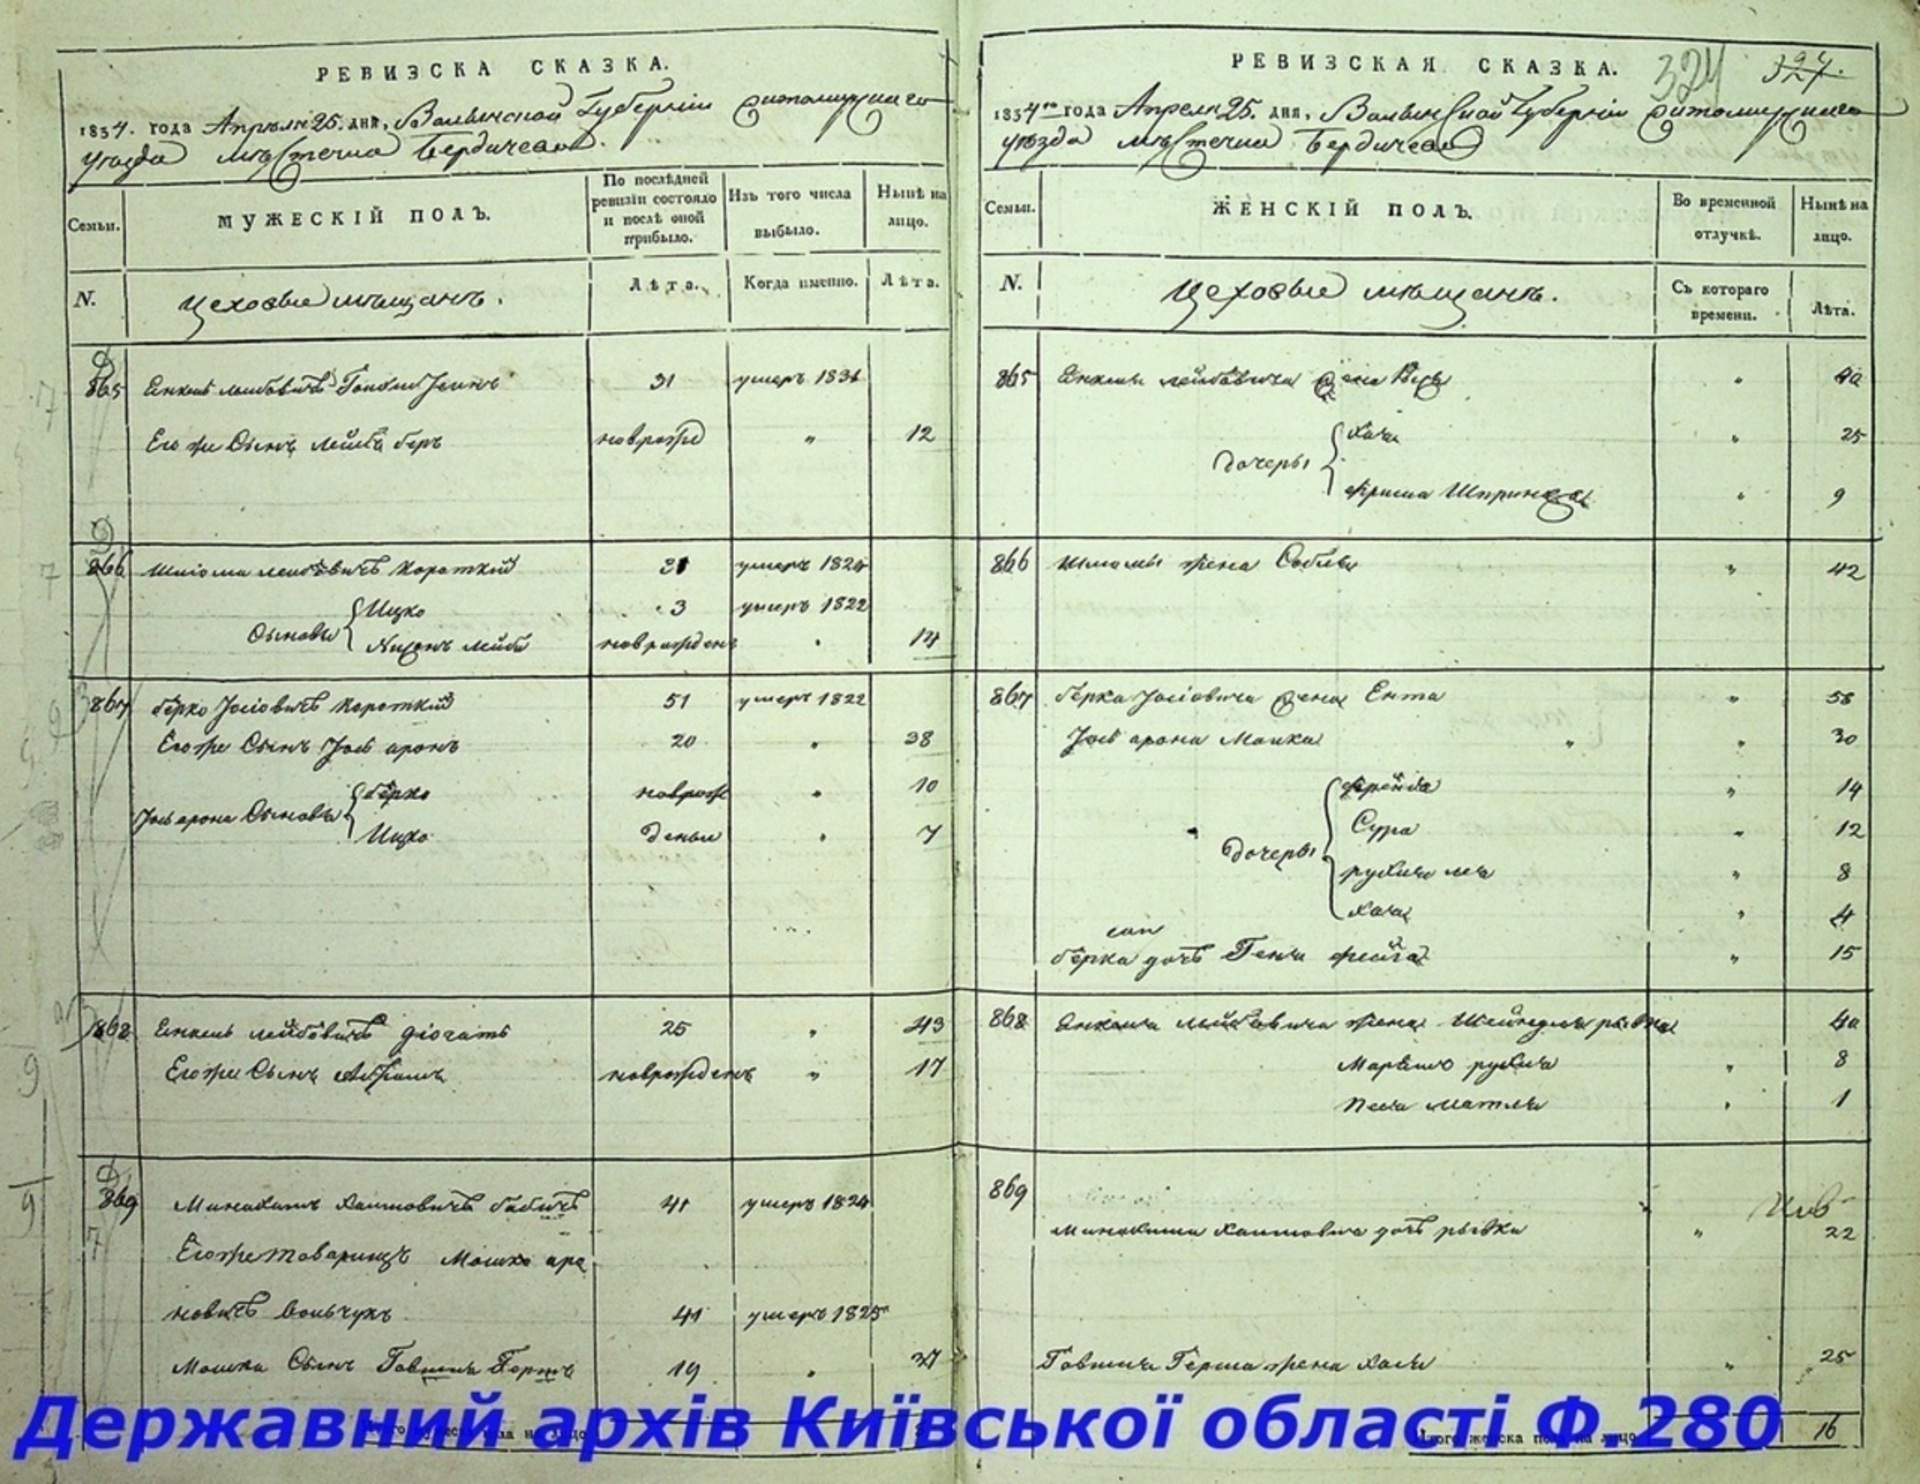 РЕВИЗСКА СКАЗКА.
1834. года Апрѣля 25. дня, Волынской Губерніи Житомирскаго
уѣзда мѣстечка Бердичева.
Семьи.
МУЖЕСКІЙ ПОЛЪ.
По послѣдней ревизіи состояло и послѣ оной прибыло.
Изъ того числа выбыло.
Нынѣ на лицо.
N.
Цеховые мѣщанъ.
Лѣта.
Когда именно.
Лѣта.
865 Енкель Лейбовичъ 31 умеръ 1831
Его же Сынъ Лейба Беръ новрожд " 12
866 Шлома Лейбовичъ Короткій 31 умеръ 1824
Сыновья Ицко 3 умеръ 1822
Лейба новрожденъ " 14
867 Берко Іосіовичъ Короткій 51 умеръ 1822
Его же Сынъ Іось Аронъ 20 " 38
Іось Арона Сыновья Берко новрож " 10
Ицко деныи " 7
868 Енкель Лейбовичъ 25 " 43
Его же Сынъ Абрамъ новрожденъ " 17
869 Минахимъ Хаимовичъ Бабичъ 41 умеръ 1824
Его же товарищъ Мошко Аро
новичъ Вольчукъ 41 умеръ 1825
Мошка Сынъ Говшия Гершъ 19 " 37
РЕВИЗСКАЯ СКАЗКА.
324 327.
1834го года Апреля 25. дня, Волынской Губерніи Житомирскаго
уѣзда мѣстечка Бердичева
Семьи.
ЖЕНСКІЙ ПОЛЪ.
Во временной отлучкѣ.
Нынѣ на лицо.
N.
Цеховые мѣщанъ.
Съ котораго времени.
Лѣта.
865 Енкеля Лейбовича жена " 40
Дочеры Хая " 25
Фрима Шпринца " 9
866 Шломы жена Собля " 42
867 Берка Іосіовича жена Ента " 58
Іось Арона Малка " " 30
Дочеры Фрейда " 14
Сура " 12
Рухля Леа " 8
Хая " 4
Берка дочь Геня Фейга " 15
868 Енкеля Лейбовича жена Шейндля Рывка 40
Марьямъ Рухля " 8
Песя Матля " 1
869
Минахима Хаимовича дочь Рывка " 22
Говшия Герша жена Хая " 25
Итого женска пола на лицо 16
Державний архів Київської області Ф.280